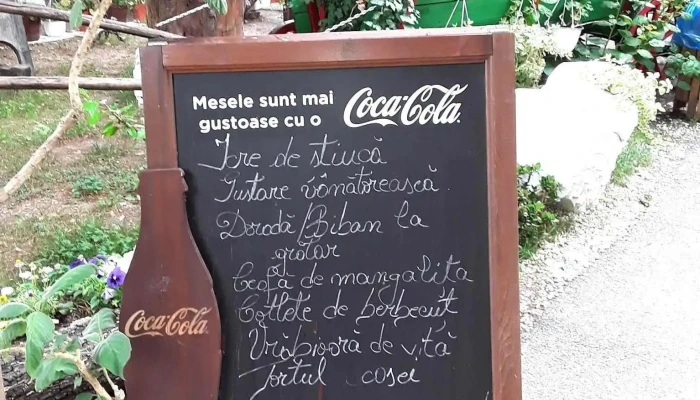 Mesele sunt mai
gustoase cu o Coca-Cola
Icre de știucă
Gustare vânătorească.
Doradă/Biban la
grătar
Ceafă de mangalița
Cotlete de berbecuț
Vrăbioară de vită
Tortul casei
Coca-Cola